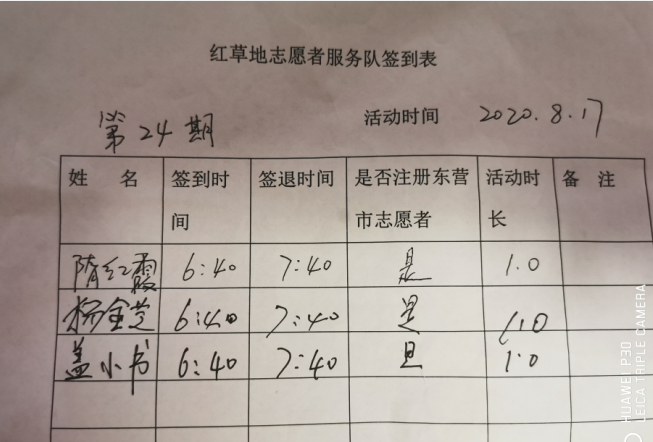 红草地志愿者服务队签到表
第24期 活动时间 2020.8.17
姓 名 签到时间 签退时间 是否注册东营市志愿者 活动时长 备 注
隋红霞 6:40 7:40 是 1.0
杨金芝 6:40 7:40 是 1.0
盖小书 6:40 7:40 是 1.0
HUAWEI P30
LEICA TRIPLE CAMERA